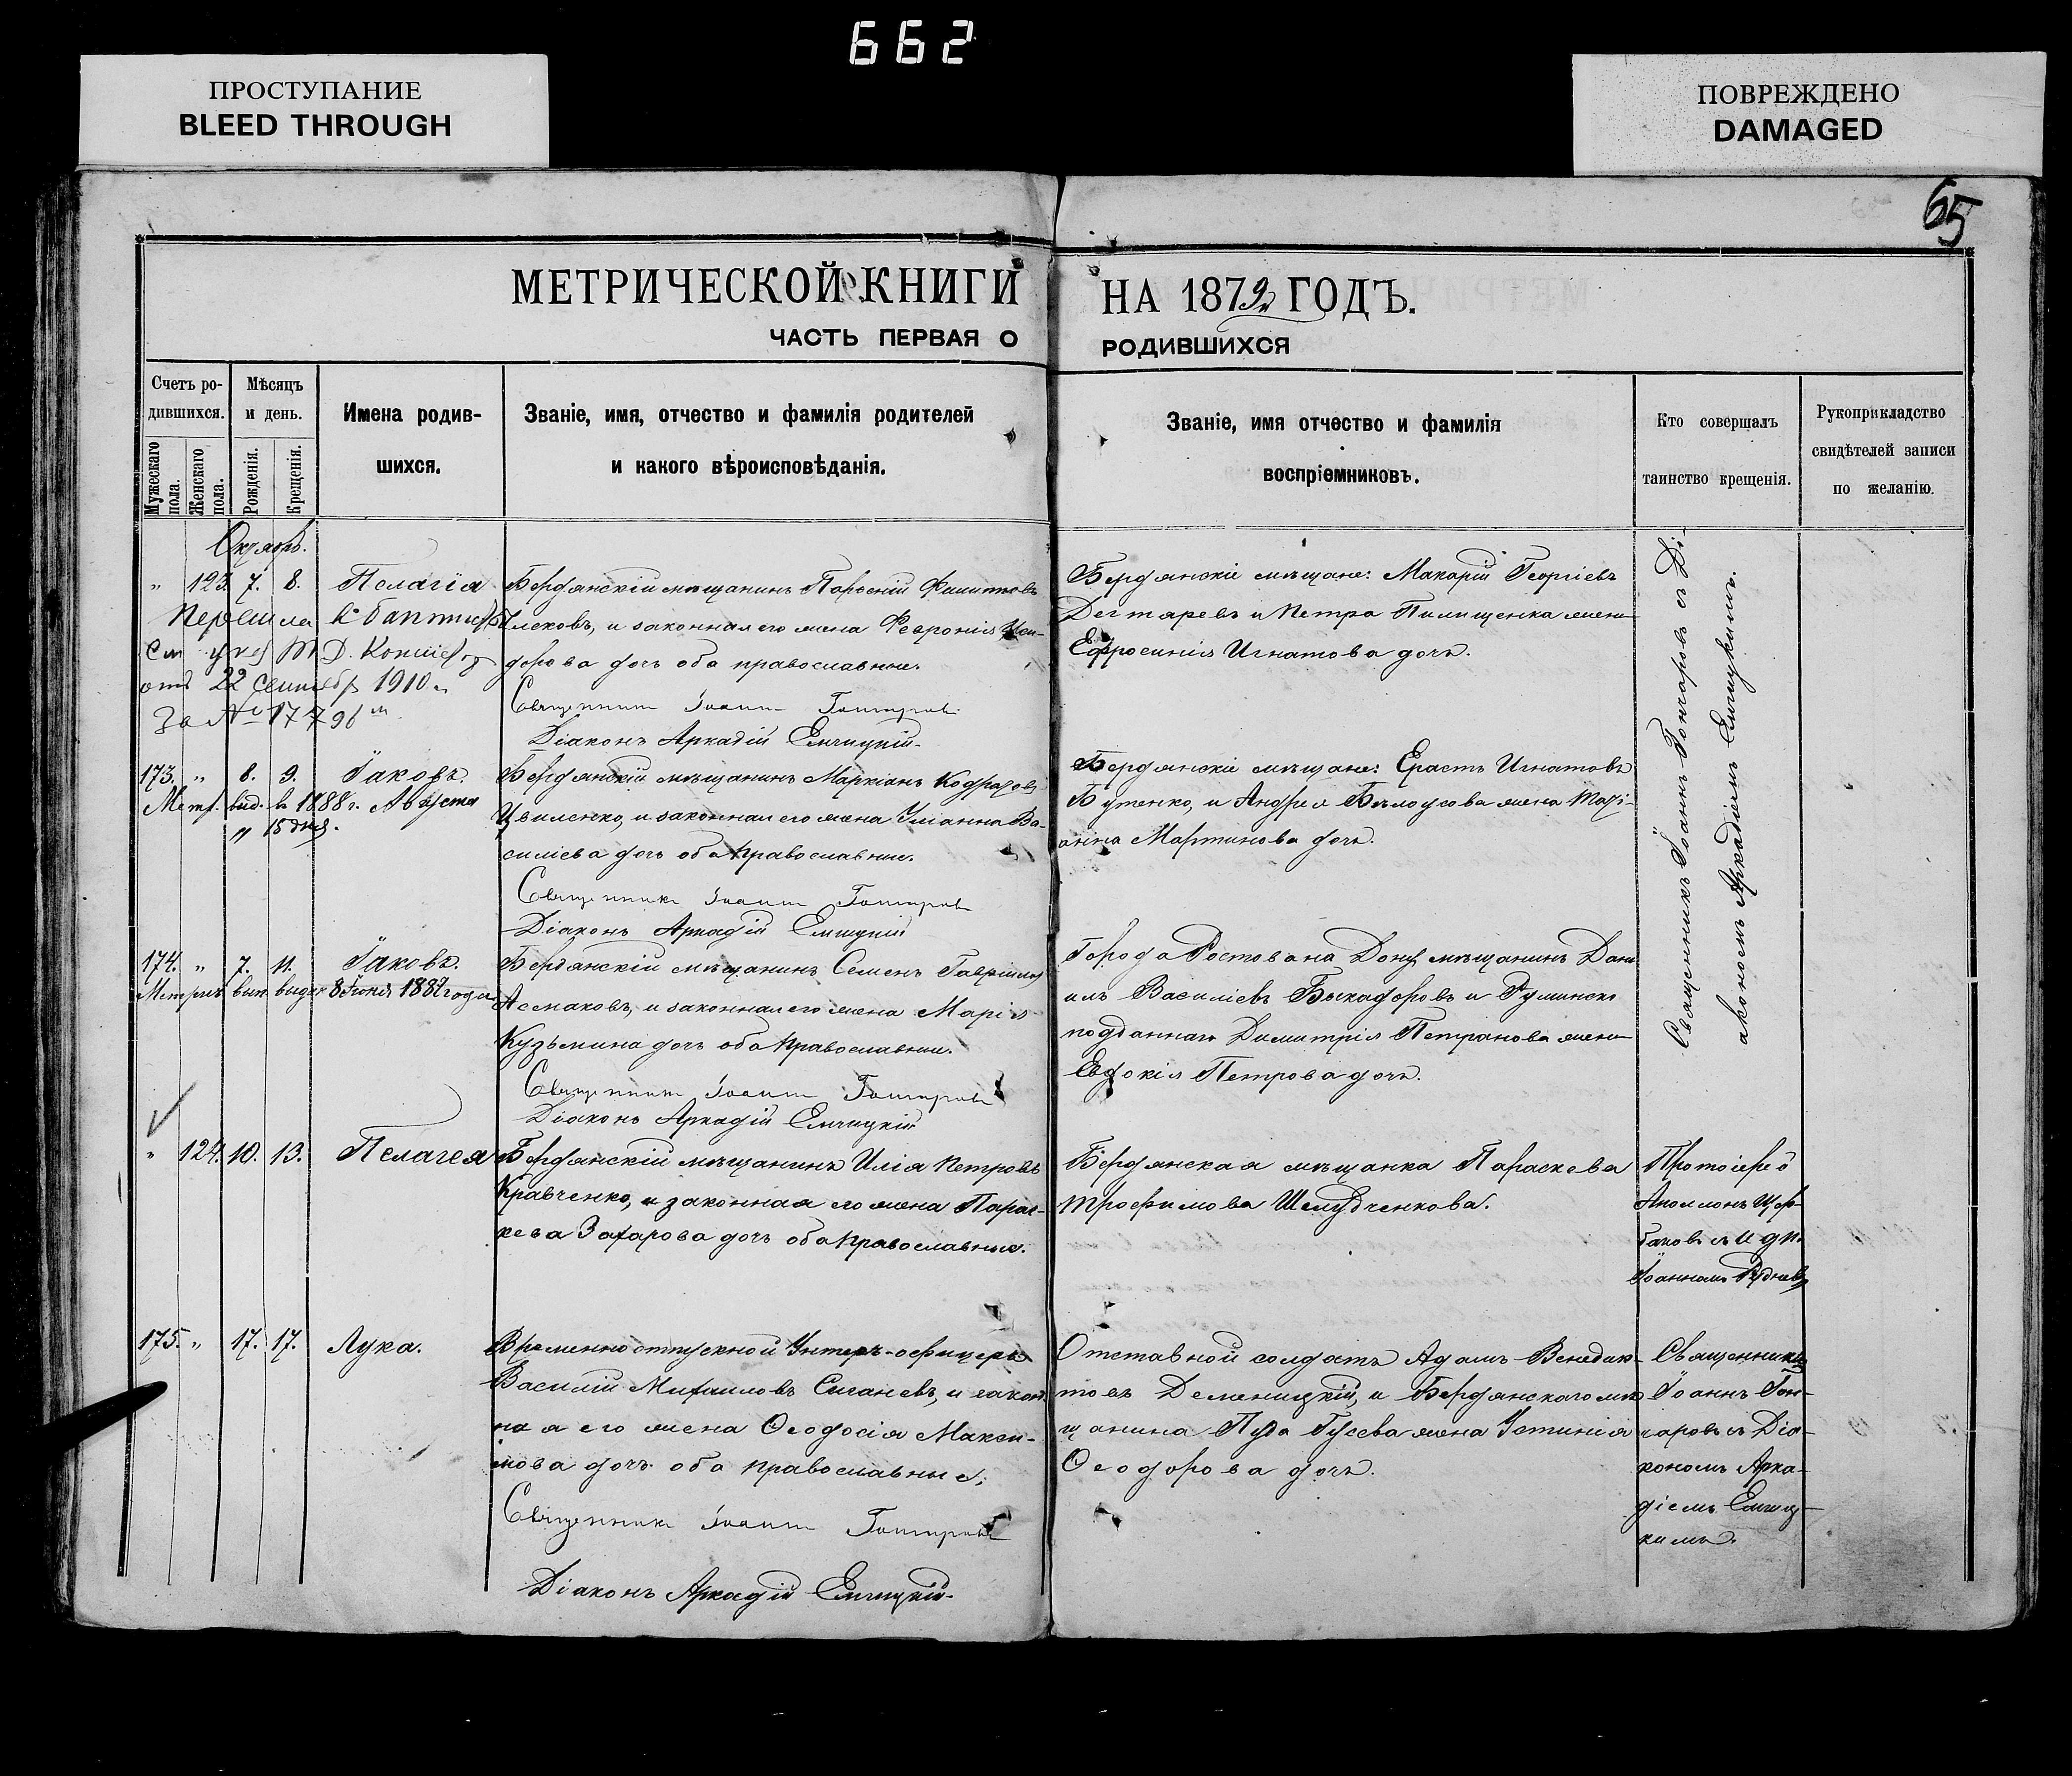 662
ПРОСТУПАНИЕ
BLEED THROUGH
ПОВРЕЖДЕНО
DAMAGED
65
МЕТРИЧЕСКОЙ КНИГИ НА 1879 ГОДЪ.
ЧАСТЬ ПЕРВАЯ О РОДИВШИХСЯ
Счетъ ро-
дившихся.
Мужескаго пола.
Женскаго пола.
Мѣсяцъ
и день.
Рожденія.
Крещенія.
Имена родив-
шихся.
Званіе, имя, отчество и фамилія родителей
и какого вѣроисповѣданія.
Званіе, имя отчество и фамилія
воспріемниковъ.
Кто совершалъ
таинство крещенія.
Рукоприкладство
свидѣтелей записи
по желанію.
Октябрь.
" 123. 7. 8. Пелагія
Перешла в
от 22 1910 г.
За № 17796
Бердянскій мѣщанинъ Парфеній Филиповъ
и законная его жена Феврониія Иси-
дорова дочь оба православные.
Священник Іоанн Гончаров
Діаконъ Аркадій Емчицкій.
Бердянскіе мѣщане: Макарій Георгіевъ
Дегтаревъ и Петра Пилищенка жена
Ефросинія Игнатова дочь.
Священникъ Іоаннъ Гончаровъ съ Ді-
акономъ Аркадіемъ Емчицкимъ.
173. " 8. 9. Іаковъ.
Метр. выд. в 1888 г. Августа
" 15 дня.
Бердянскій мѣщанинъ Маркіанъ
Цвиленко, и законная его жена Уліанна Ва-
силіева дочь оба православные.
Священник Іоанн Гончаров
Діаконъ Аркадій Емчицкій
Бердянскіе мѣщане: Ерастъ Игнатовъ
Бутенко, и Андрея Бѣлоусова жена Тати-
анна Мартинова дочь.
174. " 7. 11. Іаковъ.
Метрич. вып. выдан 8 Іюня 1887 года
Бердянскій мѣщанинъ Семенъ Гавріиловъ
Асмаковъ, и законная его жена Марія
Кузьмина дочь оба православные.
Священник Іоанн Гончаров
Діаконъ Аркадій Емчицкій
Города Ростова на Дону мѣщанинъ Дани-
илъ Василіевъ Быкадоровъ и Румынско
подданнаго Димитрія Петранова жена
Евдокія Петрова дочь.
" 124. 10. 13. Пелагея
Бердянскій мѣщанинъ Илія Петровъ
Кравченко, и законная его жена Парас-
кева Захарова дочь оба православные.
Бердянская мѣщанка Параскева
Трофимова Шелудченкова.
Протоіерей
Аполлонъ Щер-
баковъ съ и д п.
Іоанномъ Рудневъ
175. " 17. 17. Лука.
Временно отпускной Унтеръ-офицеръ
Василій Михаиловъ Сиганевъ, и закон-
ная его жена Ѳеодосія Макси-
мова дочь оба православные;
Священник Іоанн Гончаров
Діаконъ Аркадій Емчицкій.
Отставной солдатъ Адамъ Венедик-
товъ Деменицкій, и Бердянскаго мѣ-
щанина Пуда Гусева жена Устинія
Ѳеодорова дочь.
Священникъ
Іоаннъ Гон-
чаровъ съ Діа-
кономъ Арка-
діемъ Емчиц-
кимъ.